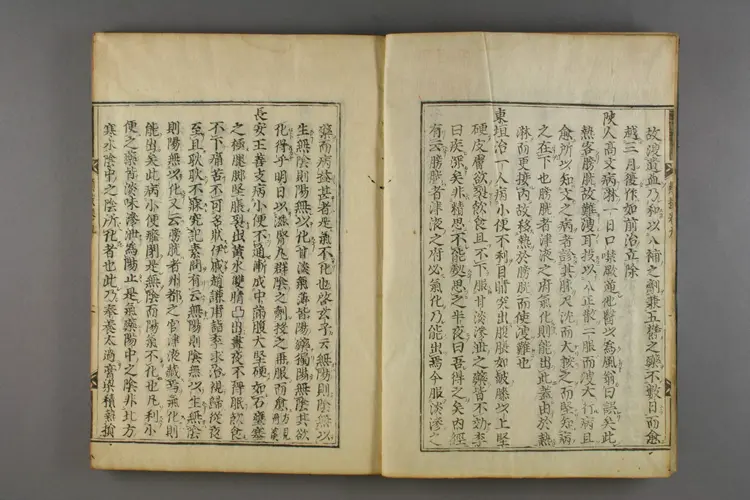 故溲遺血乃和以八補之劑兼五欝之藥不數日而愈
越三月復作如前治立除
陝人高文病淋一日口噤厥逆他醫以為風翁曰誤矣此
熱客膀胱故難溲耳投以八正散二服而溲大行病且
愈所以知文之病者診其脉尺沈而大按之而堅知病
之在下也膀胱者津液之府氣化則能出此盖由於熱
淋而更接内故移熱於膀胱而使溲難也
東垣治一人病小便不利目睛突出腹脹如皷膝以上堅
硬皮膚欲裂飲食且不下服甘淡滲泄之藥皆不効李
曰疾深矣非精思不能處思之半夜曰吾得之矣内經
有云膀胱者津液之府必氣化乃能出焉今服淡滲之
藥而病益甚者是氣不化也啓玄子云無陽則陰無以
生無陰則陽無以化甘淡氣薄皆陽藥獨陽無陰其欲
化得乎明日以滋腎丸群陰之劑投之再服而愈
長安王善支病小便不通漸成中滿腹大堅硬如石壅塞
之極腿脚堅脹裂出黄水雙睛凸出晝夜不得眠飲食
不下痛苦不可名狀伊戚趙謙甫詣李求治視歸從夜
至旦耿耿不寐究記素問有云無陽則陰無以生無陰
則陽無以化又云膀胱者州都之官津液藏焉氣化則
能出矣此病小便癃閉是無陰而陽氣不化也凡利小
便之藥皆淡味滲泄為陽止是氣藥陽中之陰非北方
寒水陰中之陰所化者也此乃奉養太過膏粱積熱損